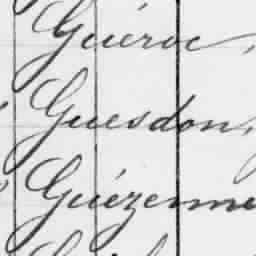 Guéroc,
Guesdon,
Guézenne